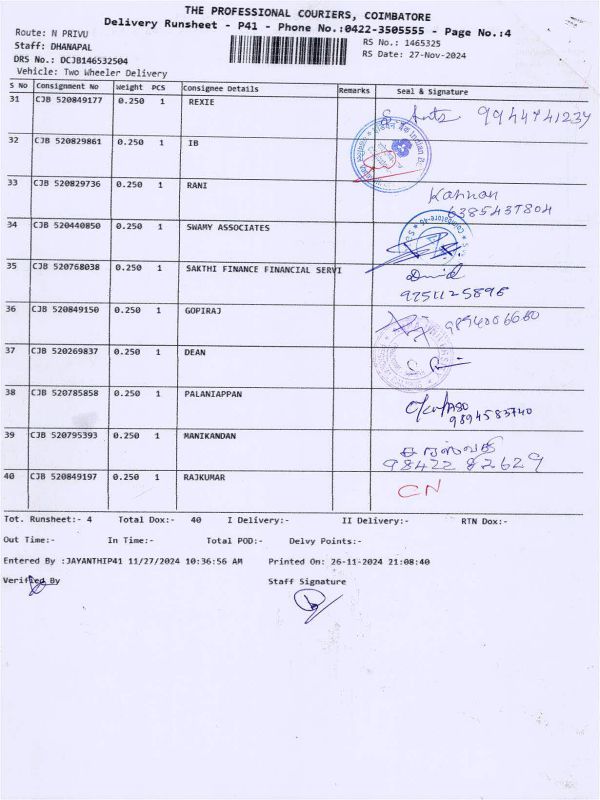 THE PROFESSIONAL COURIERS, COIMBATORE
Delivery Runsheet - P41 - Phone No.:0422-3505555 - Page No.:4
Route: N PRIVU
RS No.: 1465325
Staff: DHANAPAL
RS Date: 27-Nov-2024
DRS No.: DCJB146532504
Vehicle: Two Wheeler Delivery
S No Consignment No Weight PCS Consignee Details Remarks Seal & Signature
31 CJB 520849177 0.250 1 REXIE 9944741234
32 CJB 520829861 0.250 1 IB
33 CJB 520829736 0.250 1 RANI Kannan
6385437804
34 CJB 520440850 0.250 1 SWAMY ASSOCIATES
35 CJB 520768038 0.250 1 SAKTHI FINANCE FINANCIAL SERVI David
9751125896
36 CJB 520849150 0.250 1 GOPIRAJ 9894006680
37 CJB 520269837 0.250 1 DEAN
38 CJB 520785858 0.250 1 PALANIAPPAN
9894583740
39 CJB 520795393 0.250 1 MANIKANDAN
98422 82629
40 CJB 520849197 0.250 1 RAJKUMAR CN
Tot. Runsheet:- 4 Total Dox:- 40 I Delivery:- II Delivery:- RTN Dox:-
Out Time:- In Time:- Total POD:- Delvy Points:-
Entered By :JAYANTHIP41 11/27/2024 10:36:56 AM Printed On: 26-11-2024 21:08:40
Verified By Staff Signature